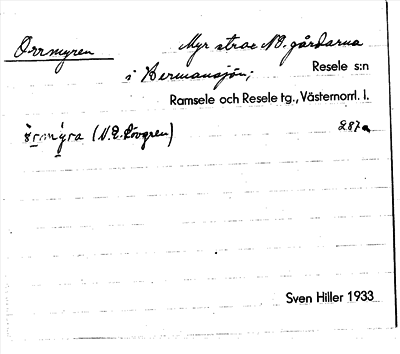 Orrmyren Myr strax NO. gårdarna
i Hermansjön; Resele s:n
Ramsele och Resele tg., Västernorrl. l.
(N. E. Lövgren) 287a
Sven Hiller 1933